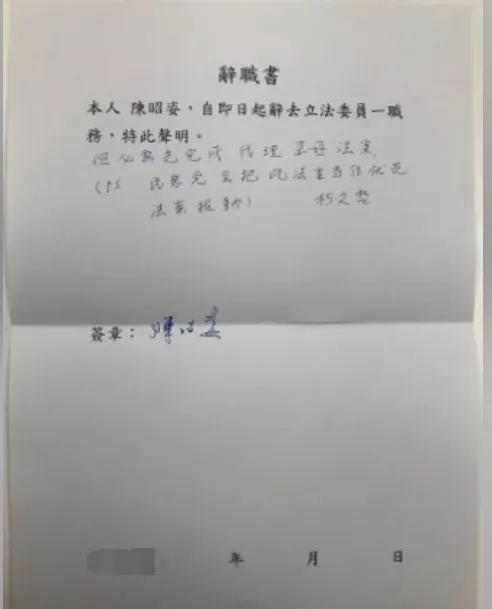 辭職書
本人 陳昭姿，自即日起辭去立法委員一職
務，特此聲明。
但必需先完成 代理孕母法案
(PS 民眾党会把此法案当作优先
法案推動) 柯文哲
簽章：陳昭姿
年 月 日